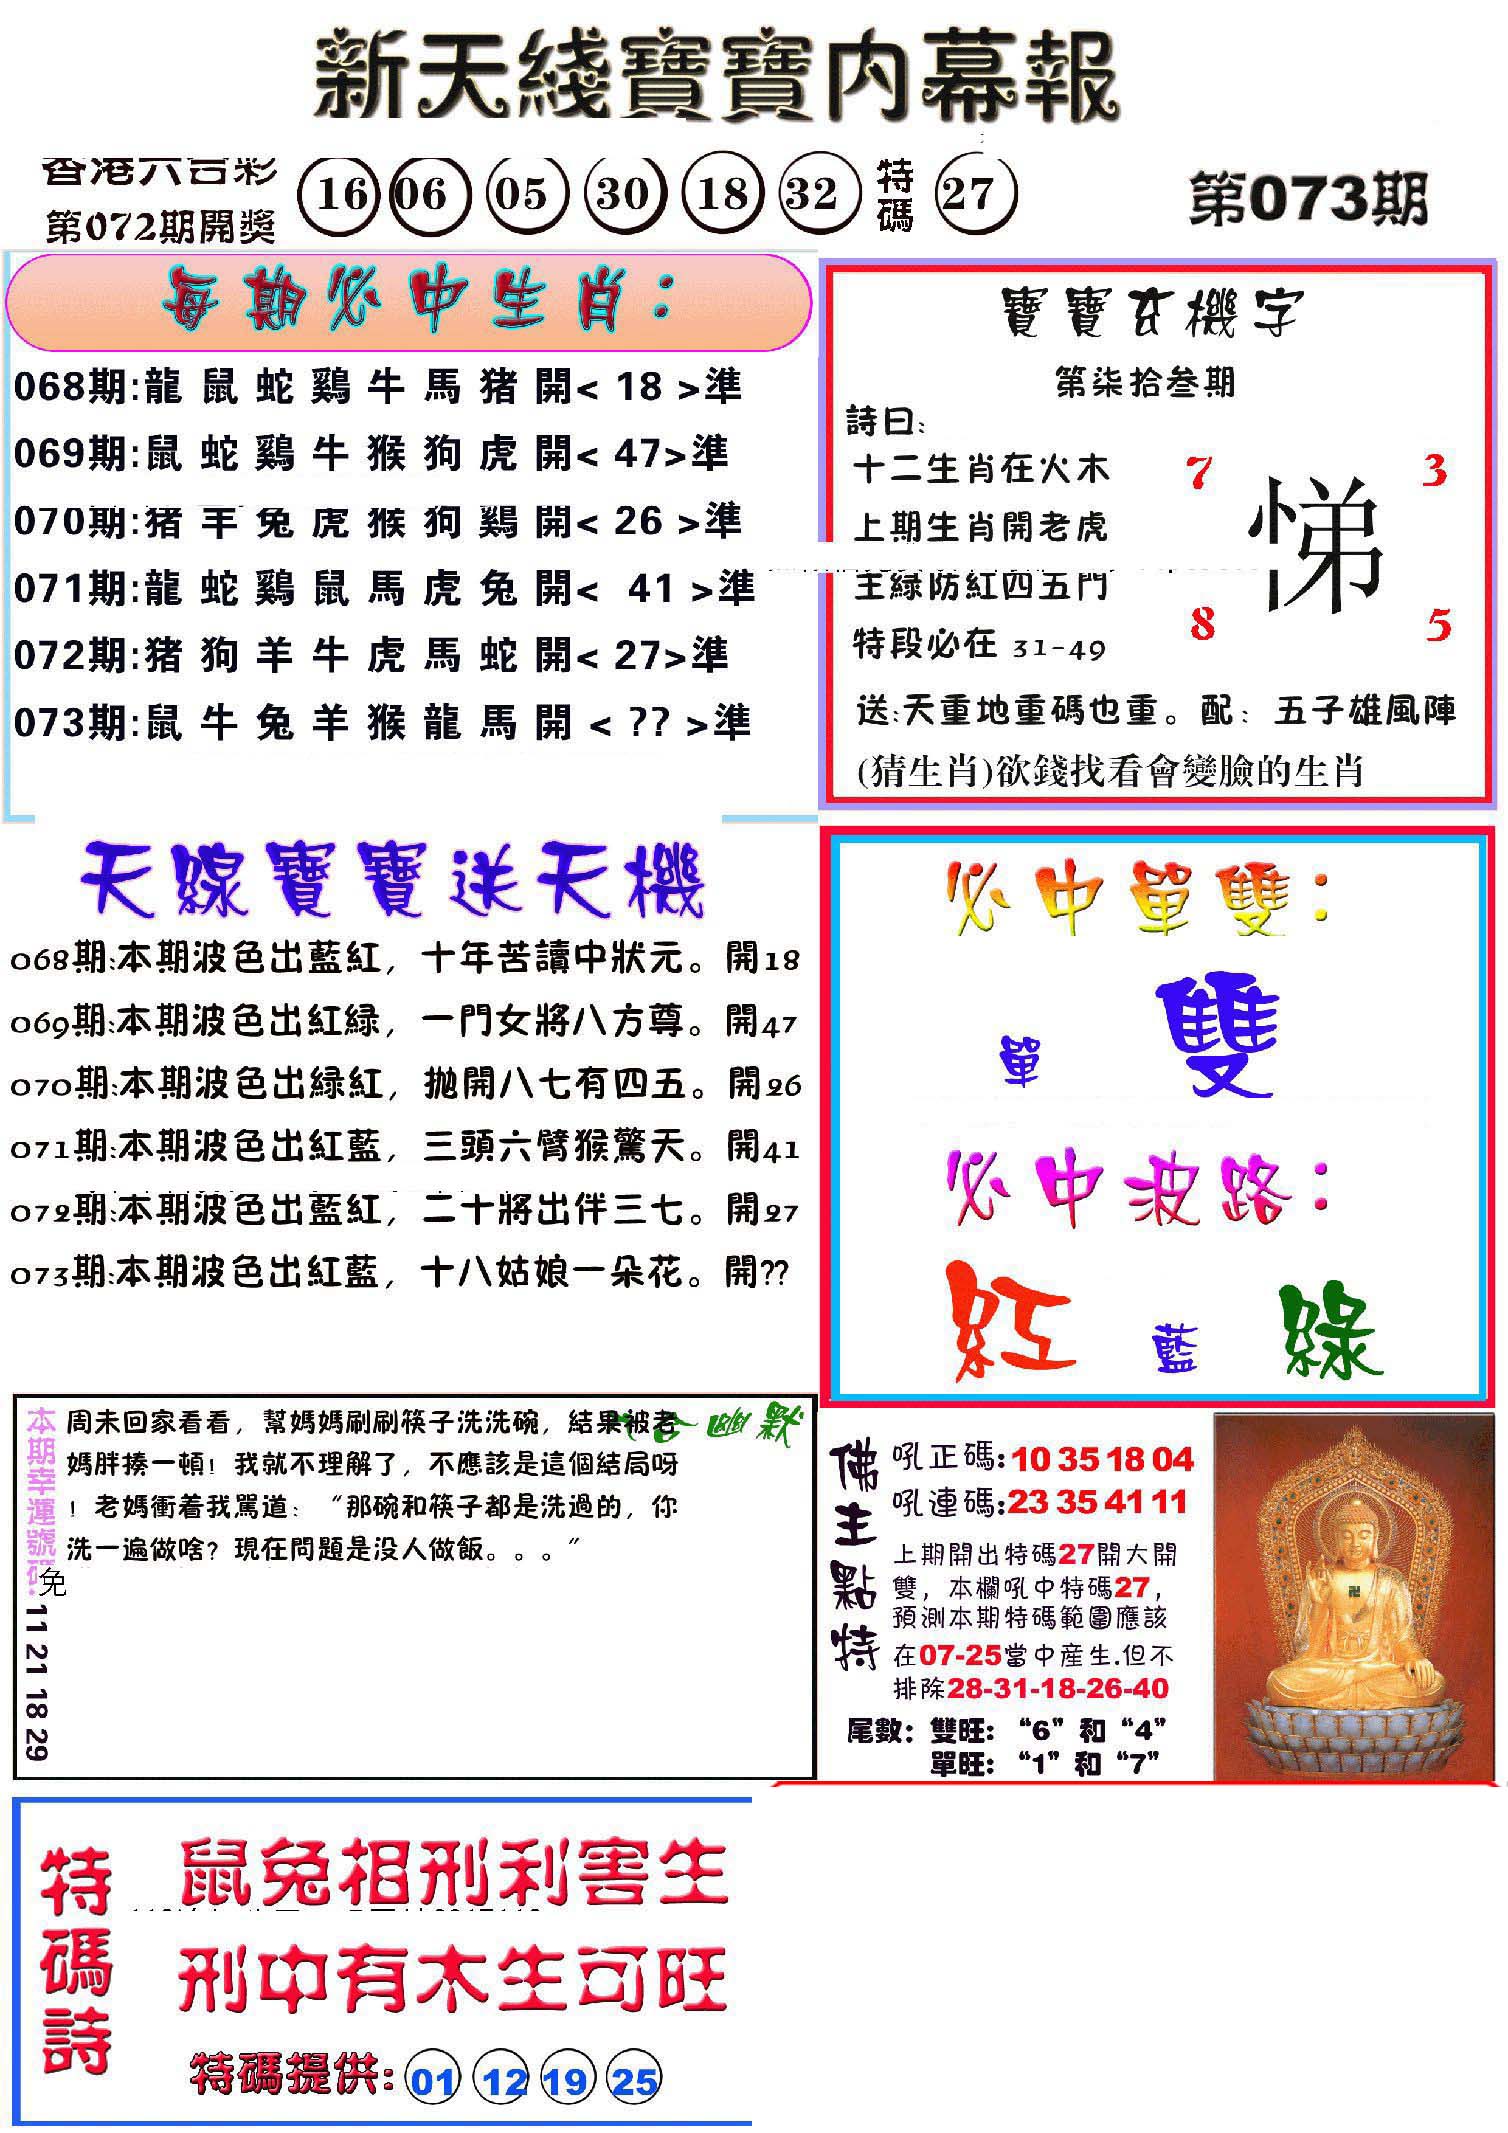 新天綫寶寶内幕報
香港六合彩
第072期開獎
16 06 05 30 18 32 特碼 27
第073期
每期必中生肖：
068期:龍 鼠 蛇 鷄 牛 馬 猪 開< 18 >準
069期:鼠 蛇 鷄 牛 猴 狗 虎 開< 47>準
070期:猪 羊 兔 虎 猴 狗 鷄 開< 26 >準
071期:龍 蛇 鷄 鼠 馬 虎 兔 開< 41 >準
072期:猪 狗 羊 牛 虎 馬 蛇 開< 27>準
073期:鼠 牛 兔 羊 猴 龍 馬 開 < ?? >準
寶寶玄機字
第柒拾叁期
詩曰:
十二生肖在火木
上期生肖開老虎
主綠防紅四五門
特段必在 31-49
7 3
悌
8 5
送:天重地重碼也重。配: 五子雄風陣
(猜生肖)欲錢找看會變臉的生肖
天線寶寶送天機
068期:本期波色出藍紅，十年苦讀中狀元。開18
069期:本期波色出紅緑，一門女將八方尊。開47
070期:本期波色出緑紅，拋開八七有四五。開26
071期:本期波色出紅藍，三頭六臂猴驚天。開41
072期:本期波色出藍紅，二十將出伴三七。開27
073期:本期波色出紅藍，十八姑娘一朵花。開??
必中單雙：
單 雙
必中波路：
紅 藍 綠
本期幸運號碼:
11 21 18 29
合幽默
周末回家看看，幫媽媽刷刷筷子洗洗碗，結果被老
媽胖揍一頓！我就不理解了，不應該是這個結局呀
！老媽衝着我駡道：“那碗和筷子都是洗過的，你
洗一遍做啥？現在問題是没人做飯。。。”
免
佛主點特
吼正碼:10 35 18 04
吼連碼:23 35 41 11
上期開出特碼27開大開
雙，本欄吼中特碼27，
預測本期特碼範圍應該
在07-25當中産生.但不
排除28-31-18-26-40
尾數：雙旺：“6”和“4”
單旺：“1”和“7”
特碼詩
鼠兔相刑利害生
刑中有木生可旺
特碼提供: 01 12 19 25